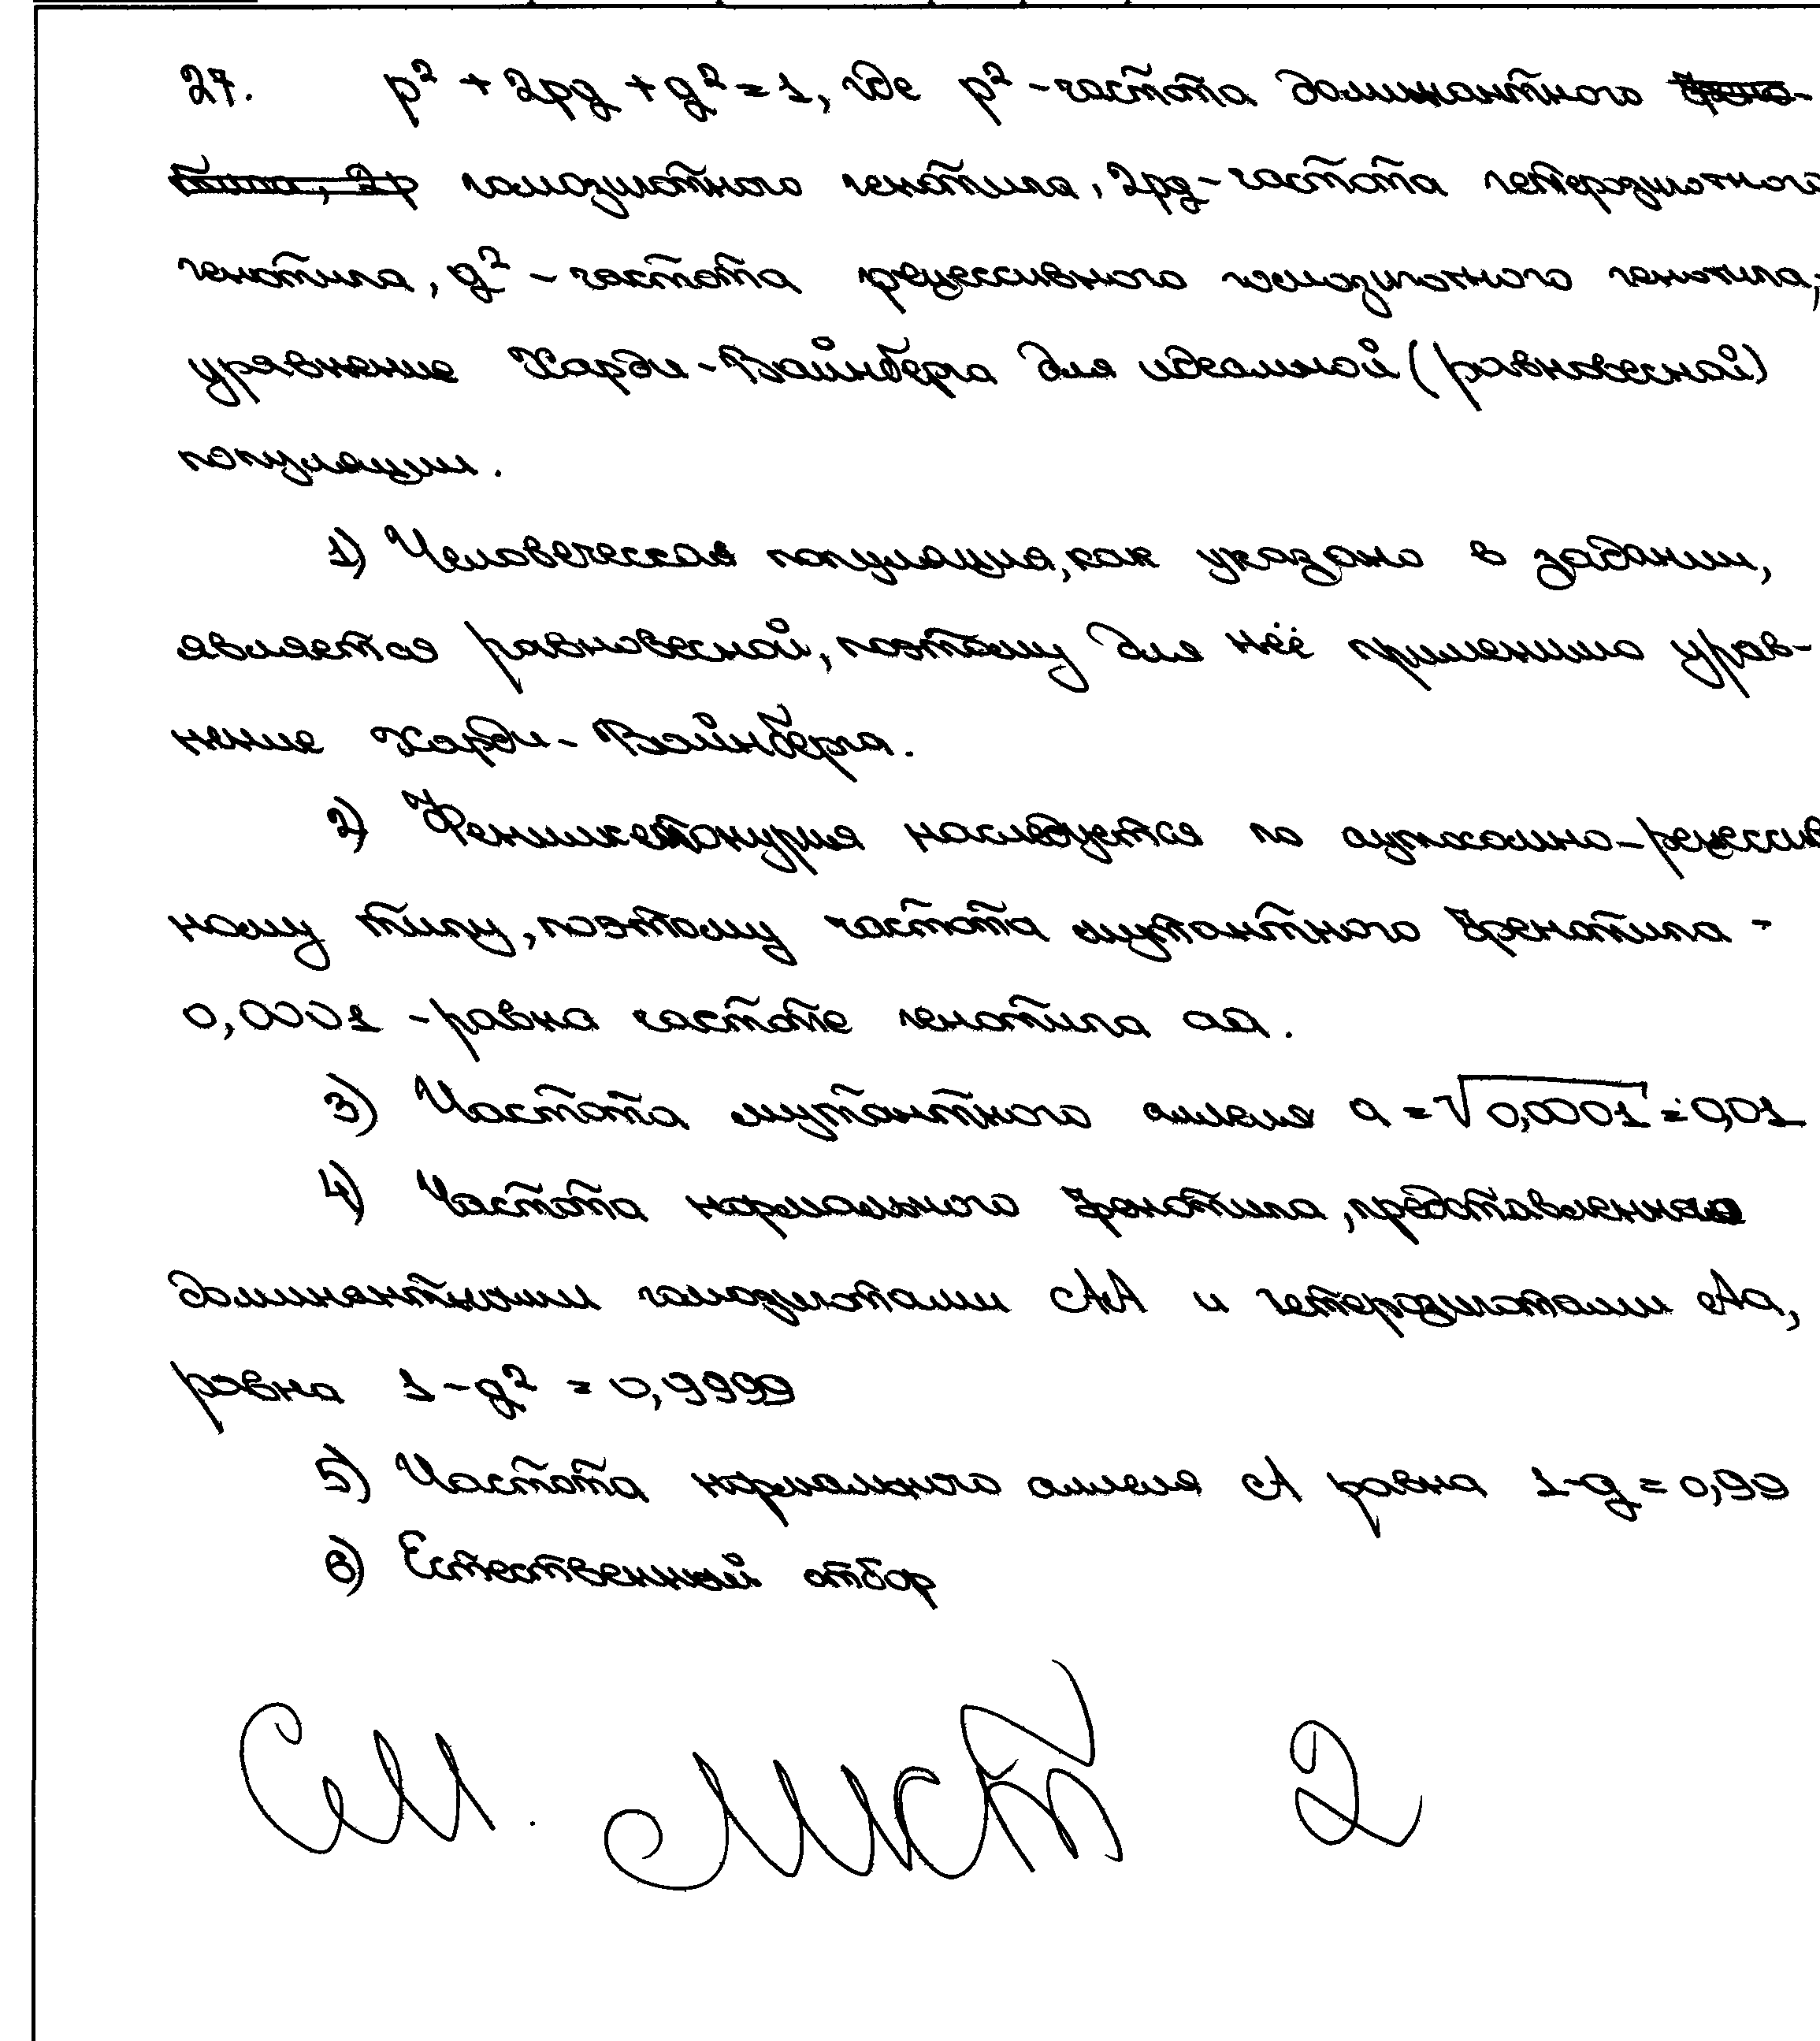 27. p² + 2pq + q² = 1, где p² - частота доминантного
гомозиготного генотипа, 2pq - частота гетерозиготного
генотипа, q² - частота рецессивного гомозиготного генотипа;
уравнение Харди-Вайнберга для идеальной (равновесной)
популяции.
1) Человеческая популяция, как указано в задании,
является равновесной, поэтому для неё применимо урав-
нение Харди-Вайнберга.
2) Фенилкетонурия наследуется по аутосомно-рецессив
ному типу, поэтому частота мутантного фенотипа -
0,0001 - равна частоте генотипа aa.
3) Частота мутантного аллеля a = √0,0001 = 0,01
4) Частота нормального фенотипа, представленного
доминантными гомозиготами AA и гетерозиготами Aa,
равна 1 - q² = 0,9999
5) Частота нормального аллеля A равна 1-q = 0,99
6) Естественный отбор
См. лист 2